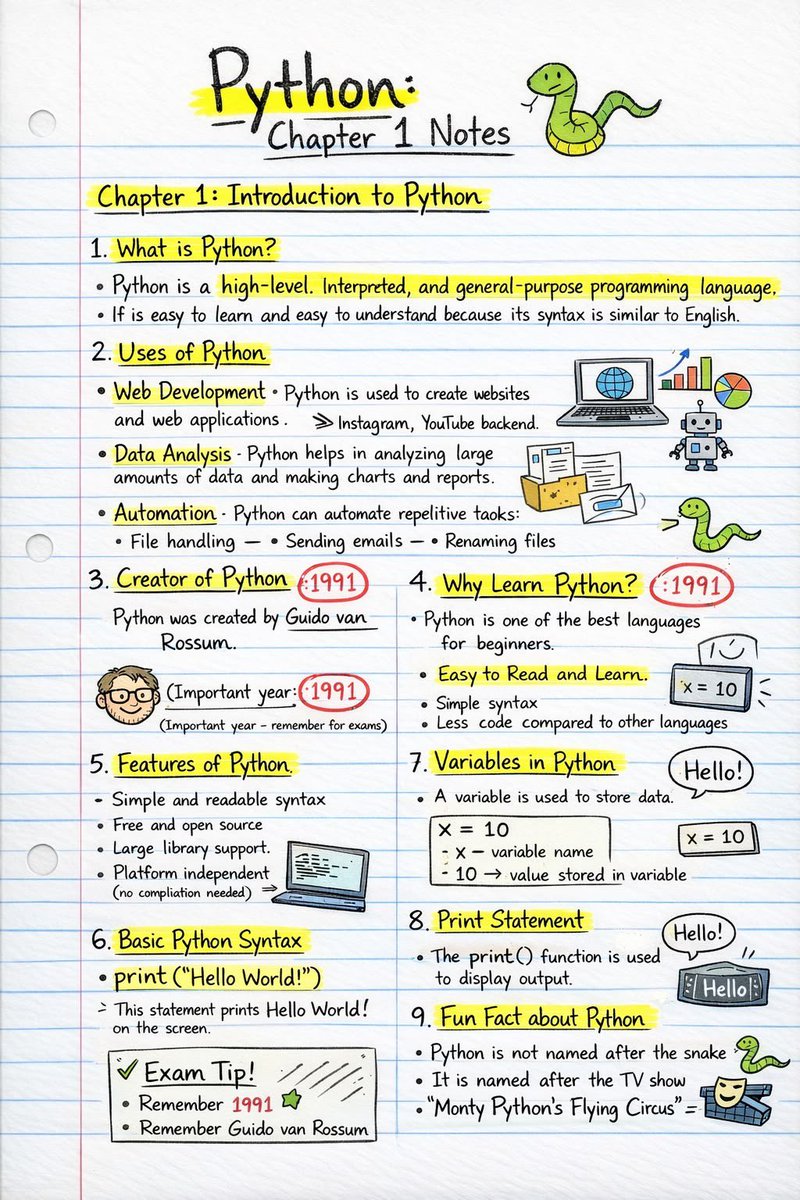 Python:
Chapter 1 Notes
Chapter 1: Introduction to Python
1. What is Python?
• Python is a high-level. Interpreted, and general-purpose programming language.
• If is easy to learn and easy to understand because its syntax is similar to English.
2. Uses of Python
• Web Development • Python is used to create websites
and web applications. ⪢ Instagram, YouTube backend.
• Data Analysis - Python helps in analyzing large
amounts of data and making charts and reports.
• Automation - Python can automate repelitive taoks:
• File handling — • Sending emails — • Renaming files
3. Creator of Python :1991
Python was created by Guido van
Rossum.
(Important year: 1991
(Important year - remember for exams)
4. Why Learn Python? :1991
• Python is one of the best languages
for beginners.
• Easy to Read and Learn.
• Simple syntax
• Less code compared to other languages
x = 10
5. Features of Python.
- Simple and readable syntax
• Free and open source
• Large library support.
• Platform independent
(no compliation needed) ⇒
7. Variables in Python
Hello!
• A variable is used to store data.
x = 10
- x – variable name
- 10 → value stored in variable
x = 10
6. Basic Python Syntax
• print (“Hello World!”)
> This statement prints Hello World!
on the screen.
✓ Exam Tip!
• Remember 1991
• Remember Guido van Rossum
8. Print Statement
Hello!
• The print() function is used
to display output.
Hello!
9. Fun Fact about Python
• Python is not named after the snake
• It is named after the TV show
• “Monty Python's Flying Circus” =